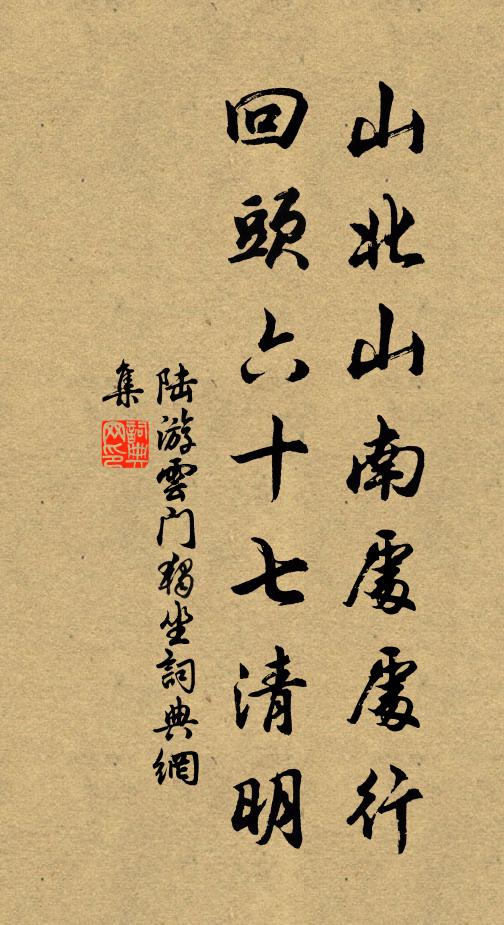 山北山南處處行
回頭六十七清明
陸游雲门獨坐詞典網
集
詞典
网印